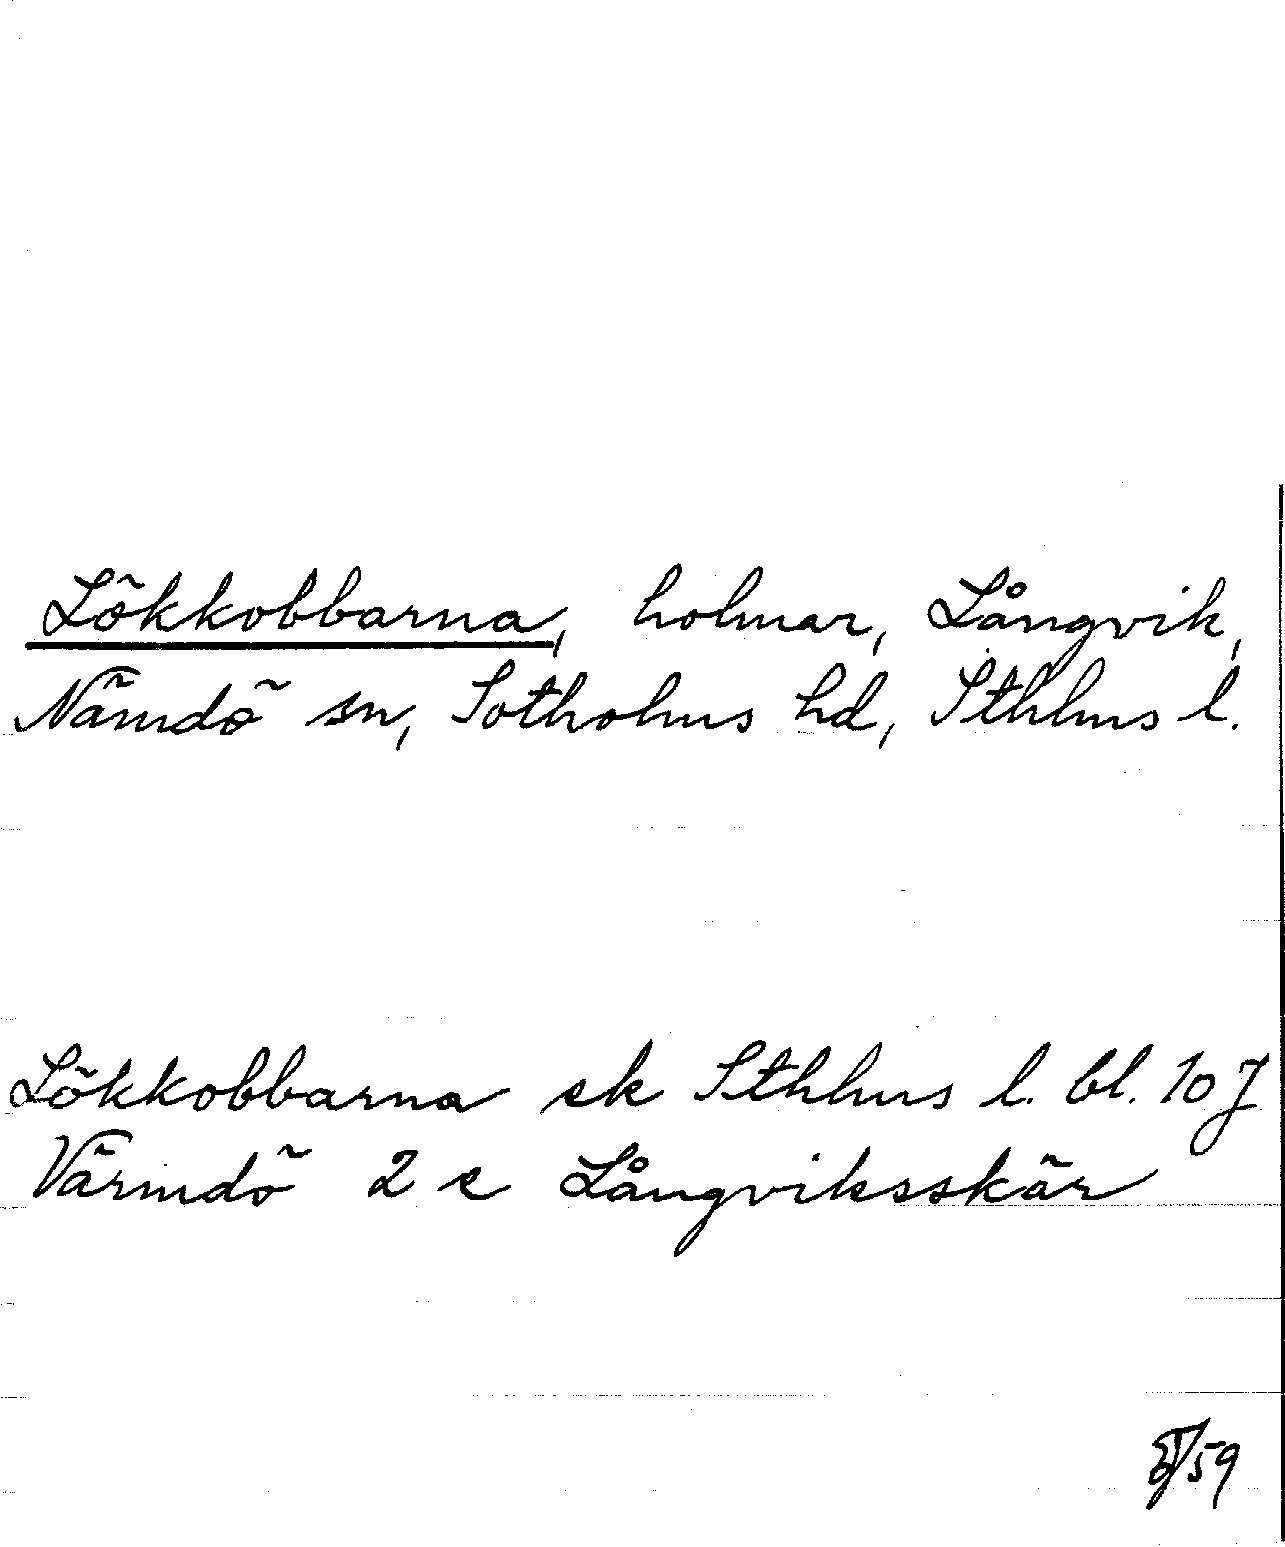 Lökkobbarna, holmar, Långvik,
Nämdö sn, Sotholms hd, Sthlms l.
Lökkobbarna ek Sthlms l. bl. 10 J
Värmdö 2 e Långviksskär
/59